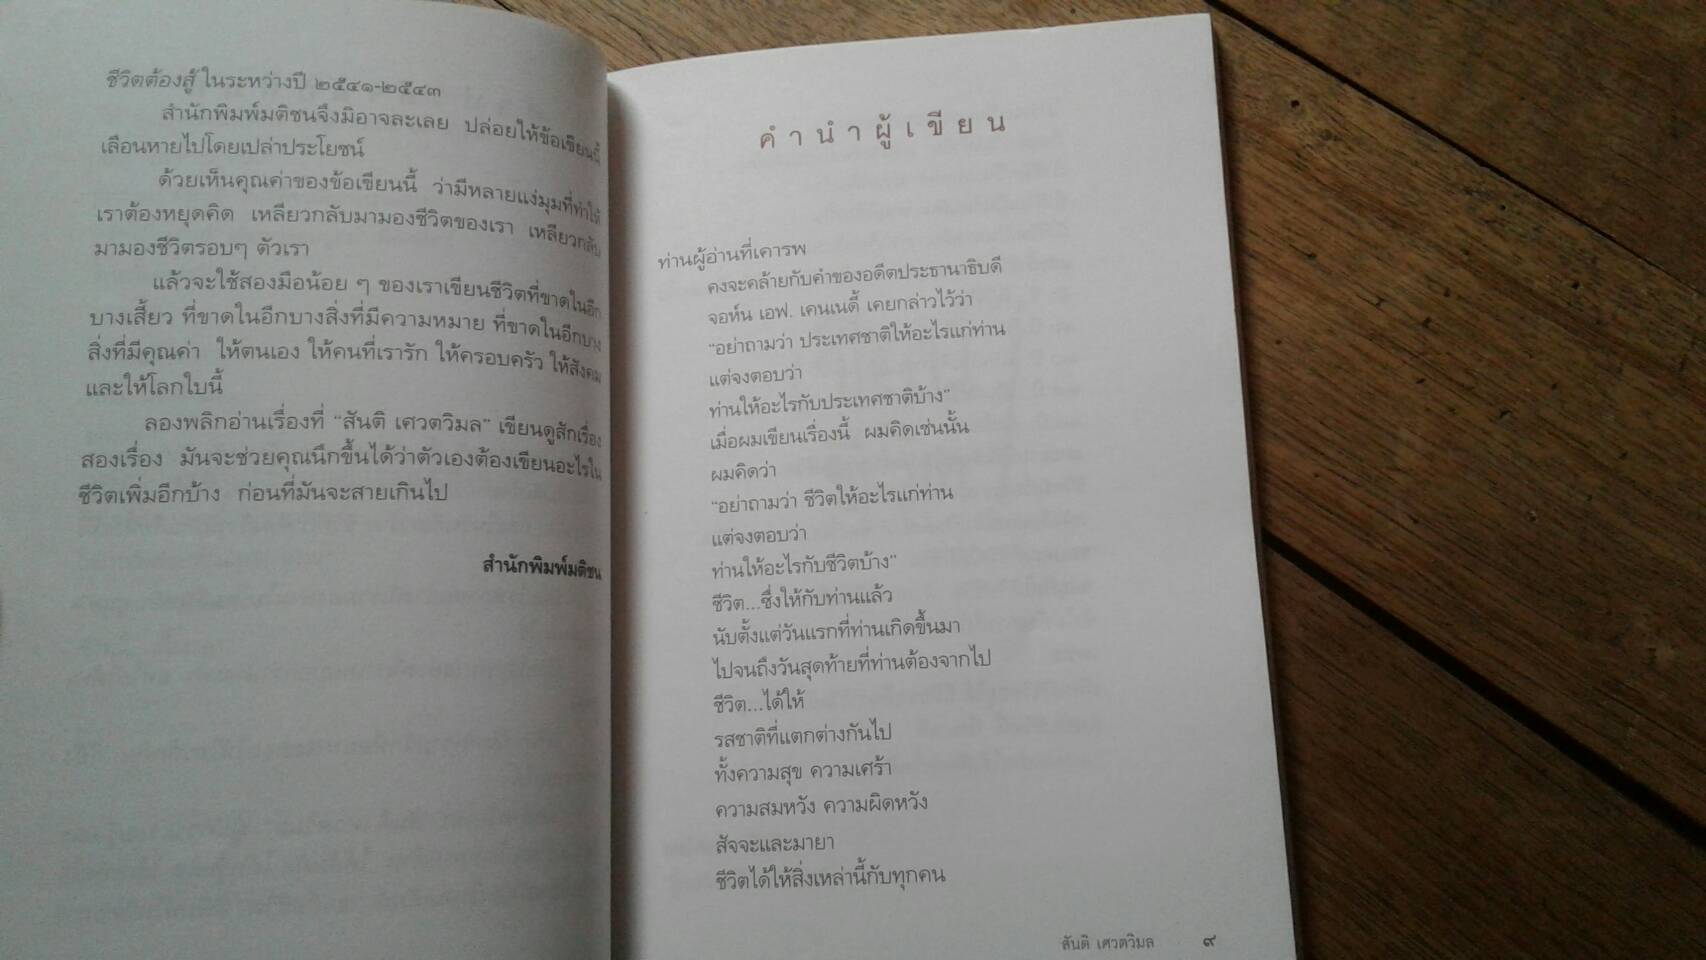 ชีวิตต้องสู้ ในระหว่างปี ๒๕๔๑-๒๕๔๓
สำนักพิมพ์มติชนจึงมิอาจละเลย ปล่อยให้ข้อเขียนนี้
เลือนหายไปโดยเปล่าประโยชน์
ด้วยเห็นคุณค่าของข้อเขียนนี้ ว่ามีหลายแง่มุมที่ทำให้
เราต้องหยุดคิด เหลียวกลับมามองชีวิตของเรา เหลียวกลับ
มามองชีวิตรอบๆ ตัวเรา
แล้วจะใช้สองมือน้อย ๆ ของเราเขียนชีวิตที่ขาดในอีก
บางเสี้ยว ที่ขาดในอีกบางสิ่งที่มีความหมาย ที่ขาดในอีกบาง
สิ่งที่มีคุณค่า ให้ตนเอง ให้คนที่เรารัก ให้ครอบครัว ให้สังคม
และให้โลกใบนี้
ลองพลิกอ่านเรื่องที่ "สันติ เศวตวิมล" เขียนดูสักเรื่อง
สองเรื่อง มันจะช่วยคุณนึกขึ้นได้ว่าตัวเองต้องเขียนอะไรใน
ชีวิตเพิ่มอีกบ้าง ก่อนที่มันจะสายเกินไป
สำนักพิมพ์มติชน
คำนำผู้เขียน
ท่านผู้อ่านที่เคารพ
คงจะคล้ายกับคำของอดีตประธานาธิบดี
จอห์น เอฟ. เคนเนดี้ เคยกล่าวไว้ว่า
"อย่าถามว่า ประเทศชาติให้อะไรแก่ท่าน
แต่จงตอบว่า
ท่านให้อะไรกับประเทศชาติบ้าง"
เมื่อผมเขียนเรื่องนี้ ผมคิดเช่นนั้น
ผมคิดว่า
"อย่าถามว่า ชีวิตให้อะไรแก่ท่าน
แต่จงตอบว่า
ท่านให้อะไรกับชีวิตบ้าง"
ชีวิต...ซึ่งให้กับท่านแล้ว
นับตั้งแต่วันแรกที่ท่านเกิดขึ้นมา
ไปจนถึงวันสุดท้ายที่ท่านต้องจากไป
ชีวิต...ได้ให้
รสชาติที่แตกต่างกันไป
ทั้งความสุข ความเศร้า
ความสมหวัง ความผิดหวัง
สัจจะและมายา
ชีวิตได้ให้สิ่งเหล่านี้กับทุกคน
สันติ เศวตวิมล ๙